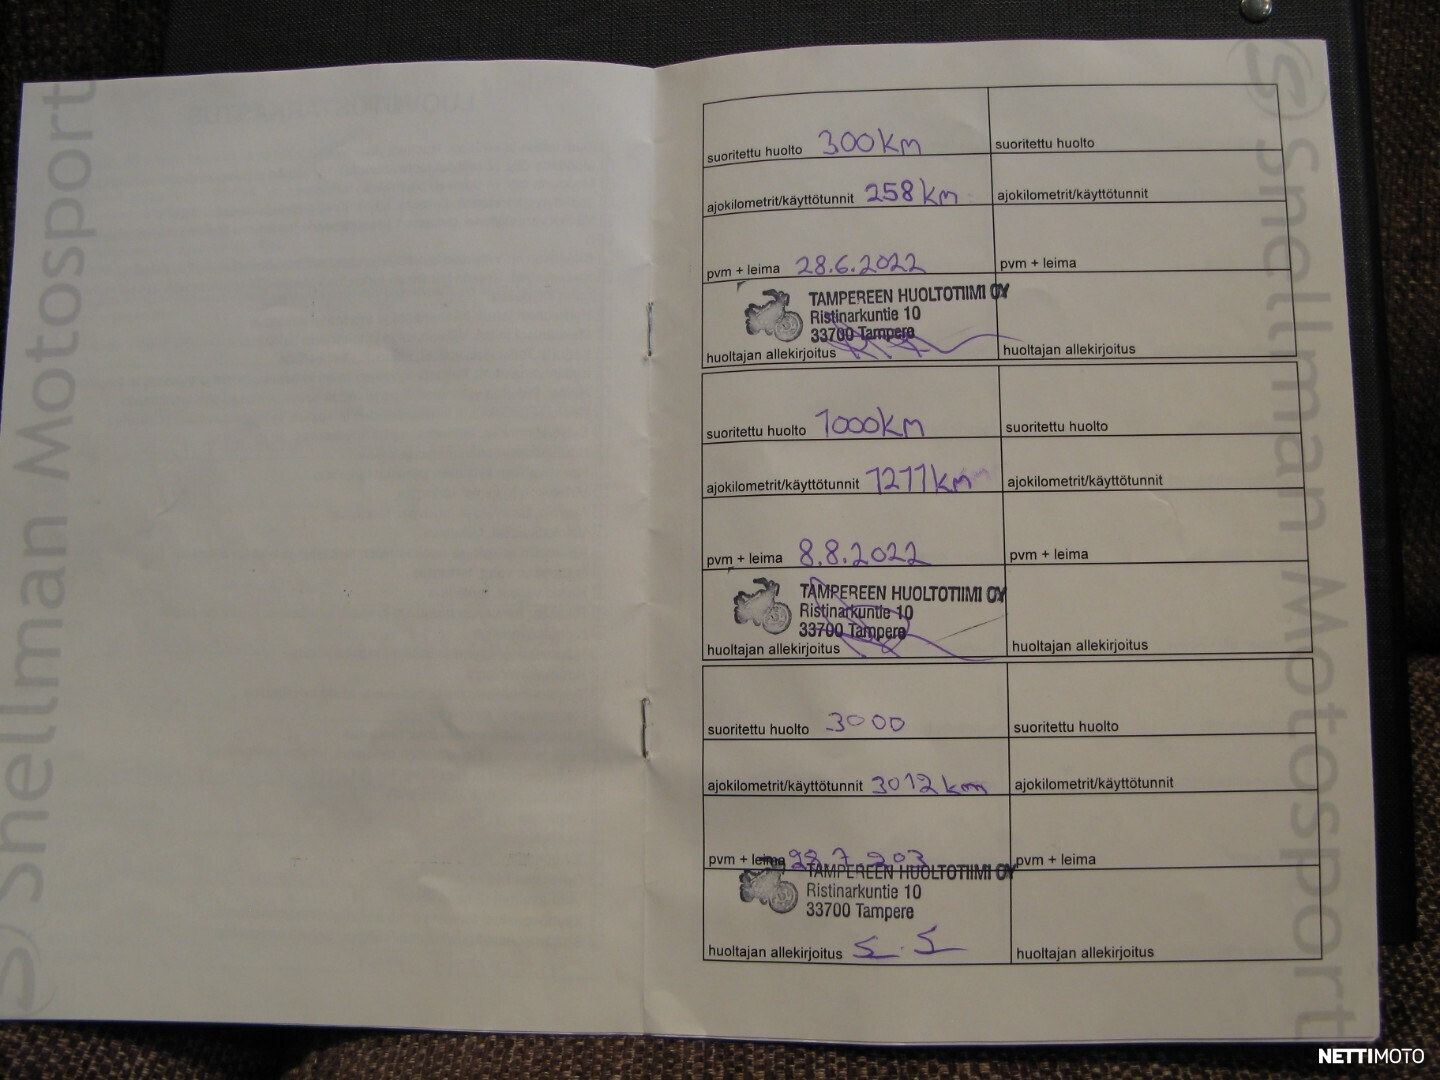 Snellman Motosport
suoritettu huolto 300 km
ajokilometrit/käyttötunnit 258 km
pvm + leima 28.6.2022
TAMPEREEN HUOLTOTIIMI OY
Ristinarkuntie 10
33700 Tampere
huoltajan allekirjoitus
suoritettu huolto
ajokilometrit/käyttötunnit
pvm + leima
huoltajan allekirjoitus
suoritettu huolto 1000 km
ajokilometrit/käyttötunnit 1211 km
pvm + leima 8.8.2022
TAMPEREEN HUOLTOTIIMI OY
Ristinarkuntie 10
33700 Tampere
huoltajan allekirjoitus
suoritettu huolto
ajokilometrit/käyttötunnit
pvm + leima
huoltajan allekirjoitus
suoritettu huolto 3000
ajokilometrit/käyttötunnit 3012 km
pvm + leima
TAMPEREEN HUOLTOTIIMI OY
Ristinarkuntie 10
33700 Tampere
huoltajan allekirjoitus
suoritettu huolto
ajokilometrit/käyttötunnit
pvm + leima
huoltajan allekirjoitus
Snellman Motosport
NETTIMOTO